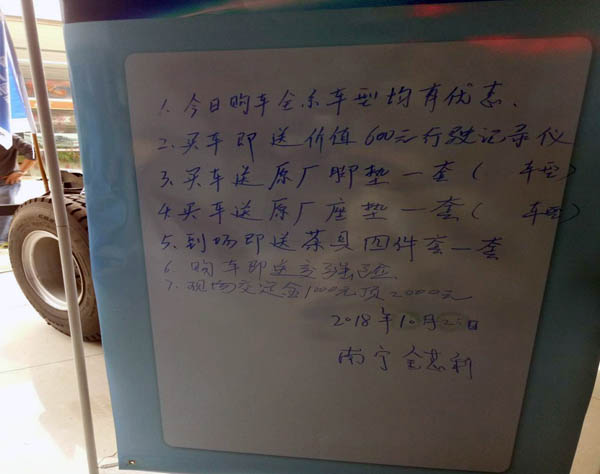 1. 今日购车全系车型均有优惠.
2. 买车即送价值600元行驶记录仪
3. 买车送原厂脚垫一套( 车型)
4. 买车送原厂座垫一套( 车型)
5. 到场即送茶具四件套一套
6 购车即送交强险
7. 现场交定金1000元顶2000元
2018年10月25日
南宁全惠利